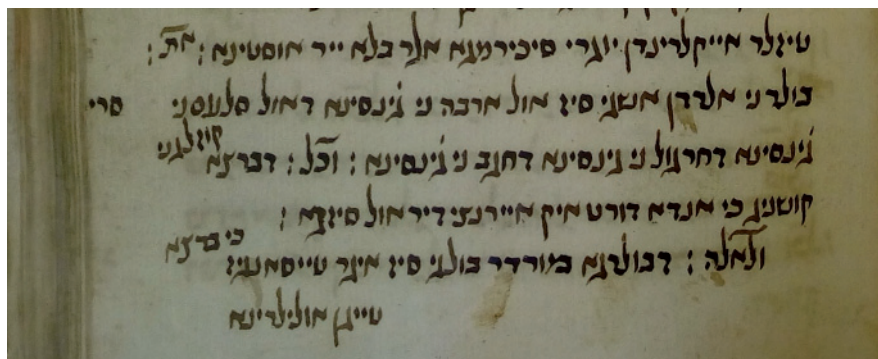 טיזלר אייקלרינדן יוגרי סיכירמגא אלר בלא ייר אוסטינא : את :
בולרני אלרדן אשגיי סיז אול ארבה ני גינסינא דאול סלעםני סרי
גינסינא דחרגול ני גינסינא דחגב ני גינסינא : וכל : דברצא קוזלגני
קושניג כי אנדא דורט איק אייירנצי דיר אול סיזגא :
ולאלה : דבולרגא מורדר בולגיי סיז איגר טייסאנגיז כי ברצא
טייגן אולילרינא